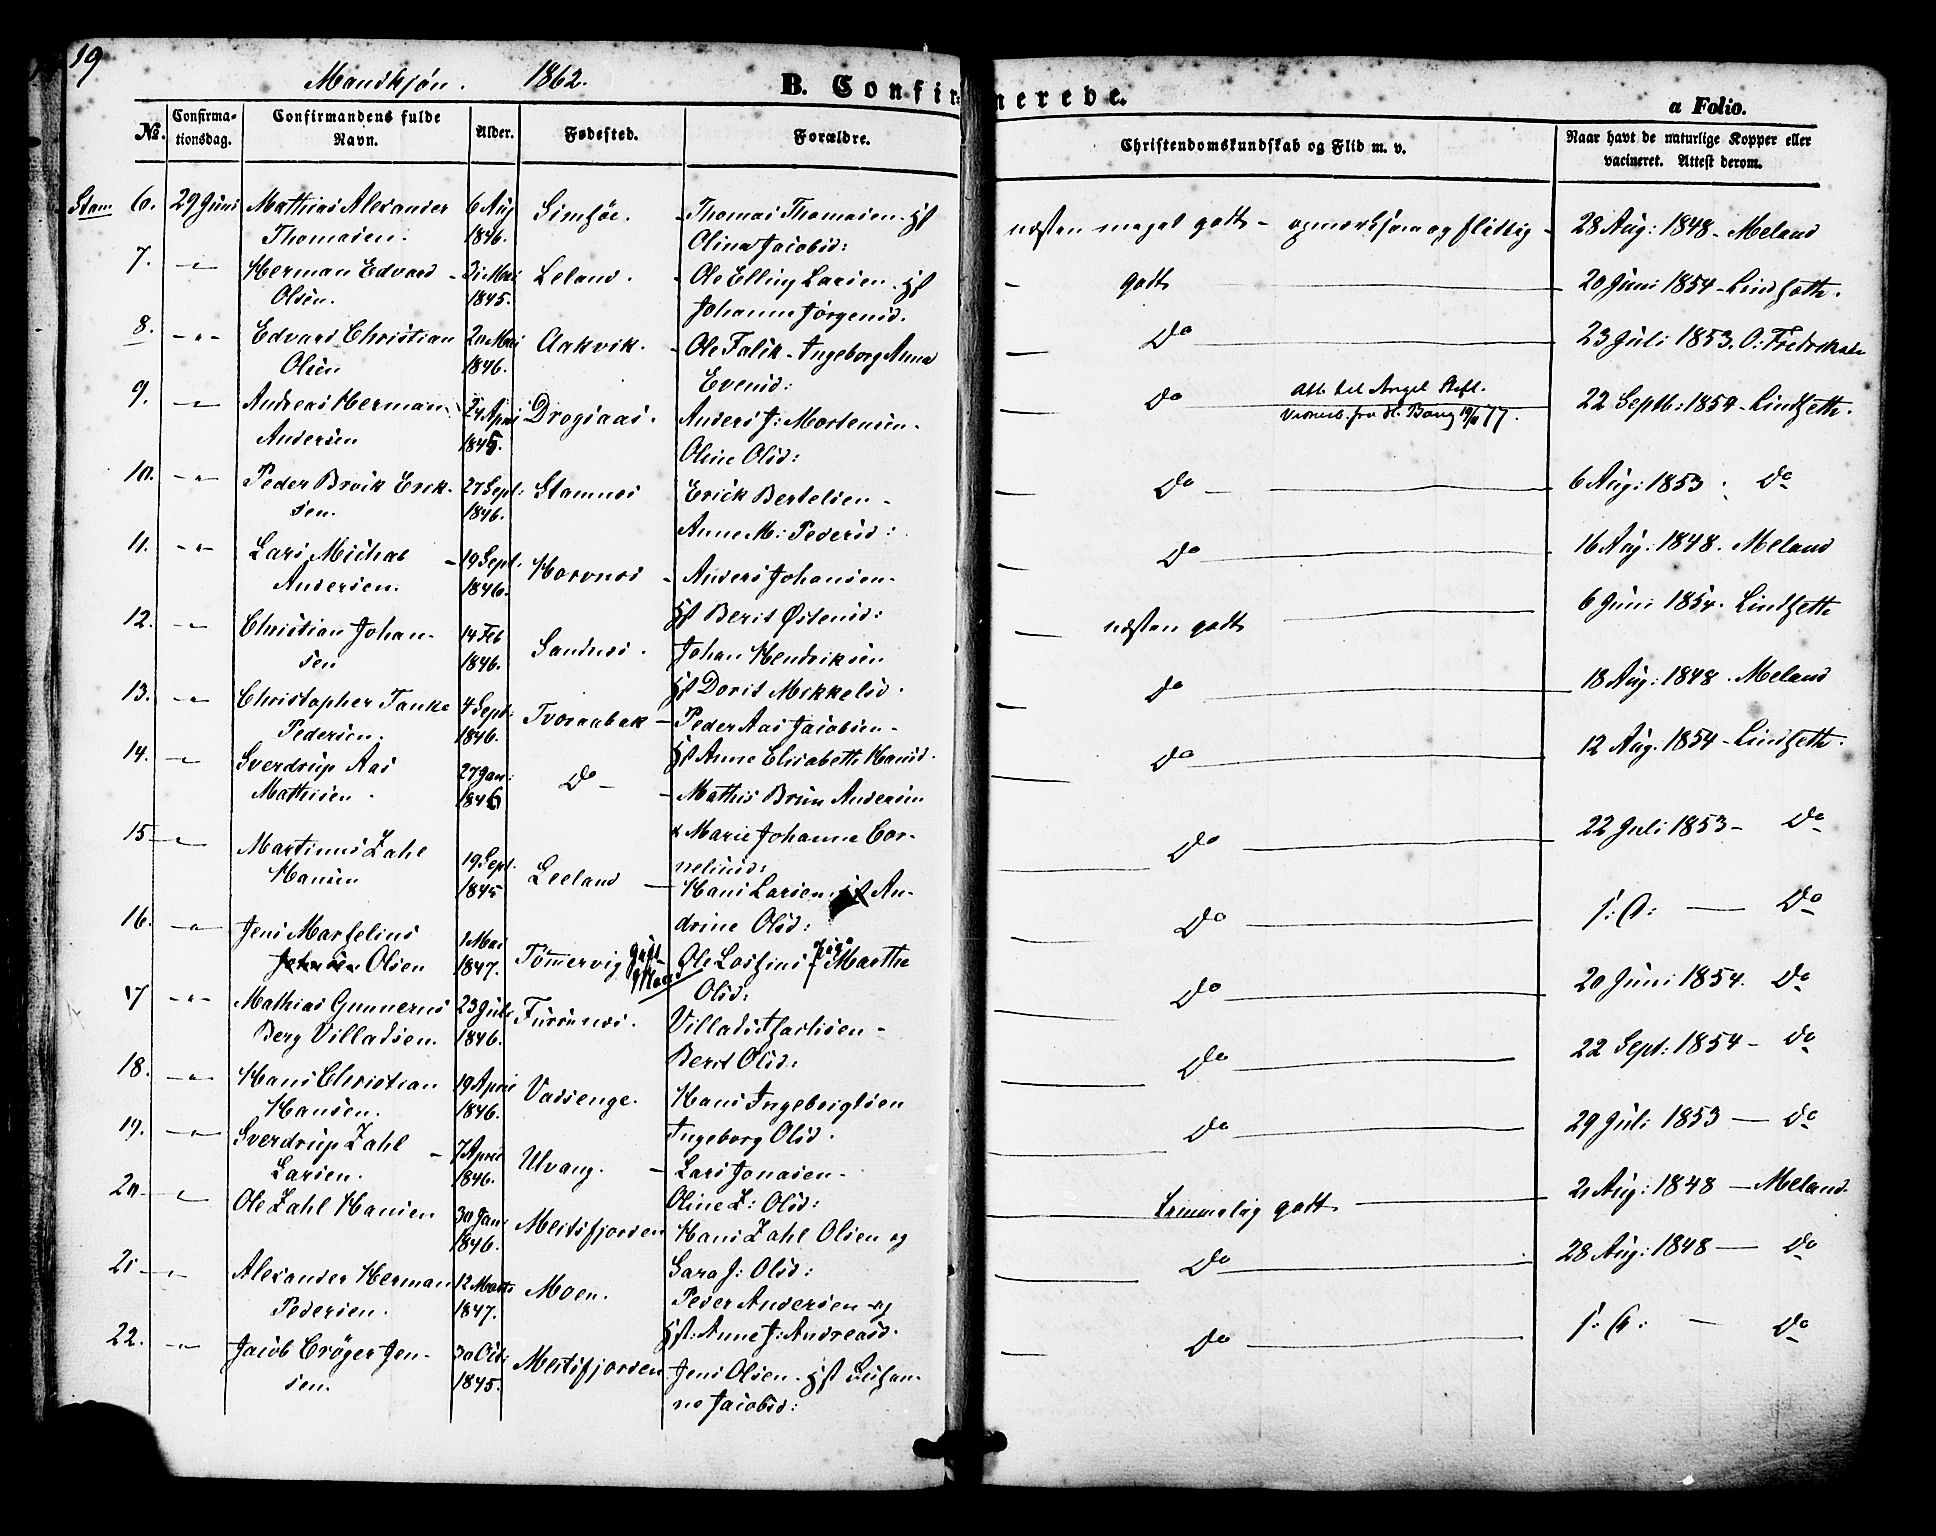 19
Mandkjøn. 1862. B. Confirmerede. a Folio.
No. Confirmationsdag. Confirmandens fulde Navn. Alder. Fødested. Forældre. Christendomskundskab og Flid m. v. Naar havt de naturlige Kopper eller vacineret. Attest derom.
Stam 6. 29 Juni Mathias Alexander 6 Aug Simsøe. Thomas Thomasen. hst næsten meget godt - opmærksom og flittig - 28 Aug: 1848 - Meland
Thomasen. 1846. Olina Jacobsd:
7. -"- Herman Edvard 31 Mai Leland. Ole Elling Larsen. hst godt 20 Juni 1854 - Lindseth.
Olsen. 1845. Johanne Jørgensd.
8. -"- Edvard Christian 20 Mai Aakvik. Ole Falik - Ingeborg Anna Do 23 Juli 1853. O: Fredriksen
Olsen 1846. Evensd:
9. -"- Andreas Herman 24 April Drogsaas. Anders J: Mortensen - Do Att. til 22 Septb: 1854 - Lindseth.
Andersen 1845. Oline Olsd: 19/11 77.
10. -"- Peder Brvik Erik- 27 Sept: Stamnes Erick Bertelsen - Do 6 Aug: 1853 Do
sen. 1846. Anne M: Pedersd:
11. -"- Lars Michal 19 Sept. Horvnes Anders Johansen - Do 16 Aug: 1848. Meland
Andersen. 1846. hst Berit Østensd:
12. -"- Christian Johan- 14 Feb Sandnes. Johan Hendriksen næsten godt 6 Juni 1854. Lindseth
sen 1846. hst Dorit Mikkelsd.
13. -"- Christopher Tanke 4 Sept: Tvoraabak Peder Aas Jacobsen - Do 18 Aug: 1848. Meland
Pedersen. 1846. hst Anne Elisabeth Hansd.
14. -"- Sverdrup Aas 27 Jan: Do Mathis Brun Andersen Do 12 Aug. 1854 - Lindseth.
Mathisen. 1846 & Marie Johanna Cor-
neliusd:
15 -"- Martinus Zahl 19 Sept. Leeland Hans Larsen hst An- Do 22 Juli 1853 - Do
Hansen 1845 drine Olsd:
16. -"- Jens Marselius 1 Mai Tømmervig Ole Lossius Pige Marthe Do Do
Johnsen Olsen 1847. Olsd:
17 -"- Mathias Gunnerus 23 Juli Furunes. Villads Isachsen - Do 20 Juni 1854. Do
Berg Villadsen. 1846. Berit Olsd:
18. -"- Hans Christian 19 April Vassenge. Hans Ingebrigtsen Do 22 Sept: 1854 - Do
Hansen. 1846. Ingeborg Olsd.
19. -"- Sverdrup Zahl 7 April Ulvang. Lars Jonasen - Do 29 Juli 1853 - Do
Larsen. 1846. Oline Z: Olsd:
20 -"- Ole Zahl Hansen 30 Jan: Meisfjorden Hans Zahl Olsen og temmelig godt 21 Aug: 1848 - Meland.
1846. Sara J: Olsd:
21 -"- Alexander Herman 12 Marts Moen. Peder Andersen og Do 28 Aug: 1848 - Do
Pedersen. 1847. hst: Anne J: Andreasd.
22. -"- Jacob Crøger Jen- 30 Oct: Meisfjorden Jens Olsen. hst Susan- Do Do
sen. 1845. na Jacobsd: